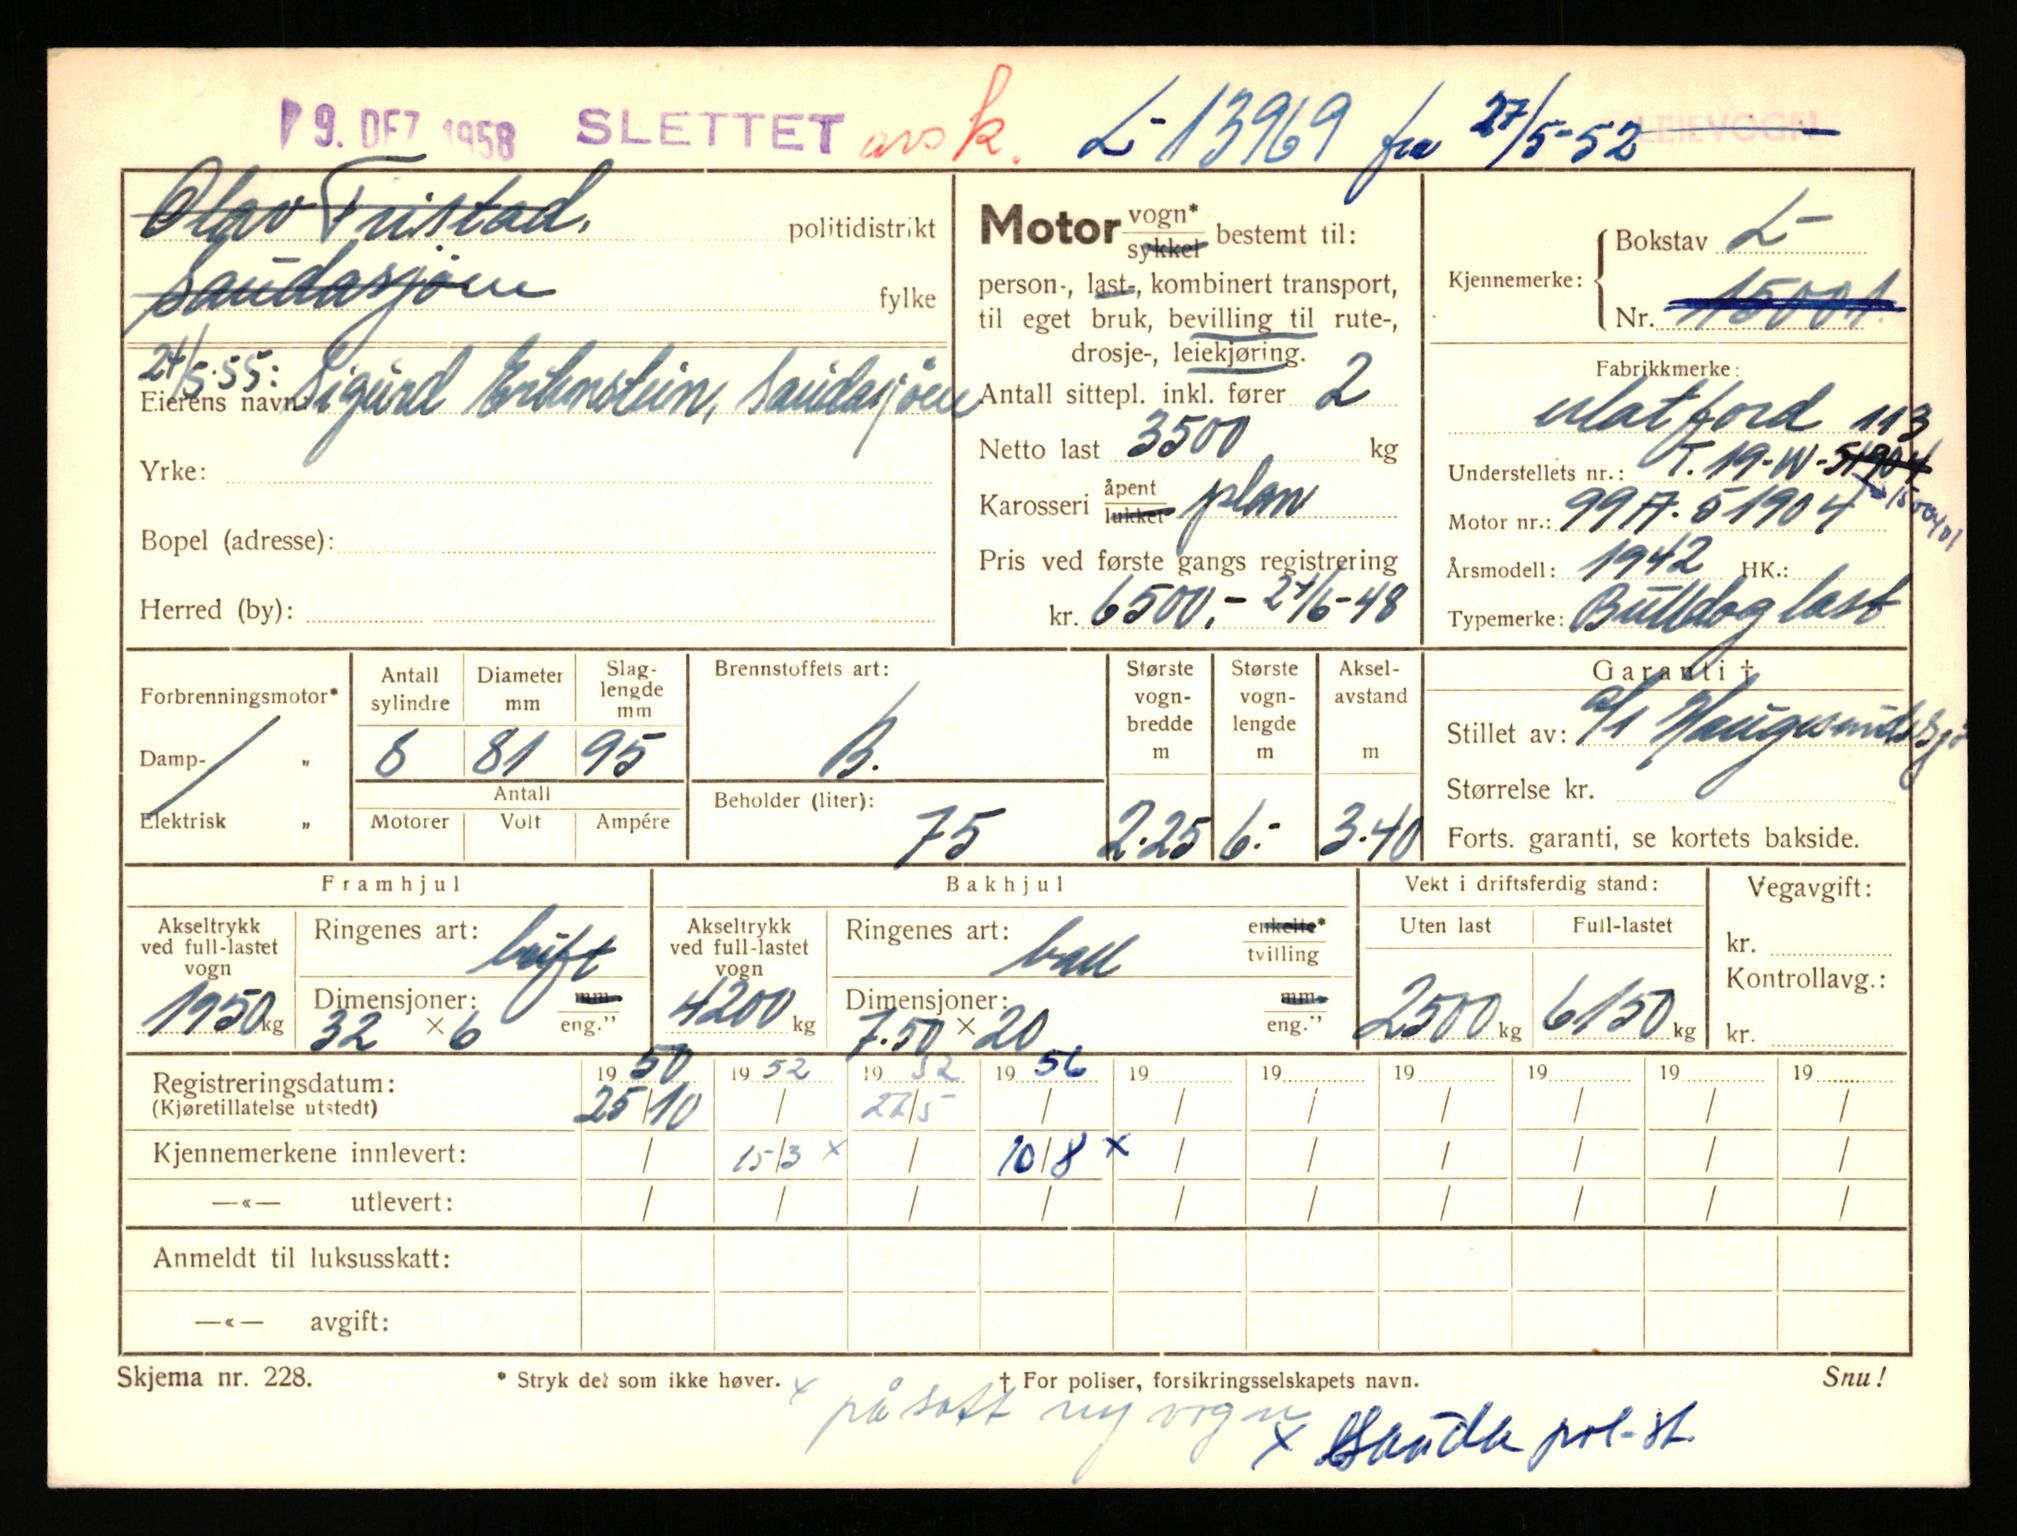 9. DEZ 1958 SLETTET avsk. L-13969 fra 27/5-52 LEIEVOGN
Olav Tristad, politidistrikt
Saudasjøen fylke
24/5.55:
Eierens navn: Sigurd Saudasjøen
Yrke:
Bopel (adresse):
Herred (by):
Motor vogn* sykkel bestemt til:
person-, last-, kombinert transport,
til eget bruk, bevilling til rute-,
drosje-, leiekjøring.
Antall sittepl. inkl. fører 2
Netto last 3500 kg
Karosseri åpent lukket plan
Pris ved første gangs registrering
kr. 6500,- 24/6-48
Kjennemerke: Bokstav L-
Nr. 15001.
Fabrikkmerke:
ford 113
Understellets nr.: T. 19-W-51904
1500401
Motor nr.: 99A. 51904
Årsmodell: 1942 HK.:
Typemerke: Bulldog last
Forbrenningsmotor*
Damp- „
Elektrisk „
Antall sylindre 8
Diameter mm 81
Slag-lengde mm 95
Antall
Motorer Volt Ampére
Brennstoffets art:
B.
Beholder (liter):
75
Største vogn-bredde m 2.25
Største vogn-lengde m 6.-
Aksel-avstand m 3.40
Garanti †
Stillet av: a/s Haugesunds Sjø
Størrelse kr.
Forts. garanti, se kortets bakside.
Framhjul
Akseltrykk ved full-lastet vogn 1950 kg
Ringenes art: luft
Dimensjoner: mm eng."
32 × 6
Bakhjul
Akseltrykk ved full-lastet vogn 4200 kg
Ringenes art: ball enkelte* tvilling
Dimensjoner: mm eng."
7.50 × 20
Vekt i driftsferdig stand:
Uten last Full-lastet
2500 kg 6150 kg
Vegavgift:
kr.
Kontrollavg.:
kr.
Registreringsdatum: 1950 1952 1952 1956 19 19 19 19 19 19
(Kjøretillatelse utstedt) 25/10 / 27/5 / / / / / / /
Kjennemerkene innlevert: / 15/3 x / 10/8 x / / / / / /
—«— utlevert: / / / / / / / / / /
Anmeldt til luksusskatt:
—«— avgift:
Skjema nr. 228. * Stryk det som ikke høver. † For poliser, forsikringsselskapets navn. Snu!
x påsatt ny vogn
x Sauda pol-st.